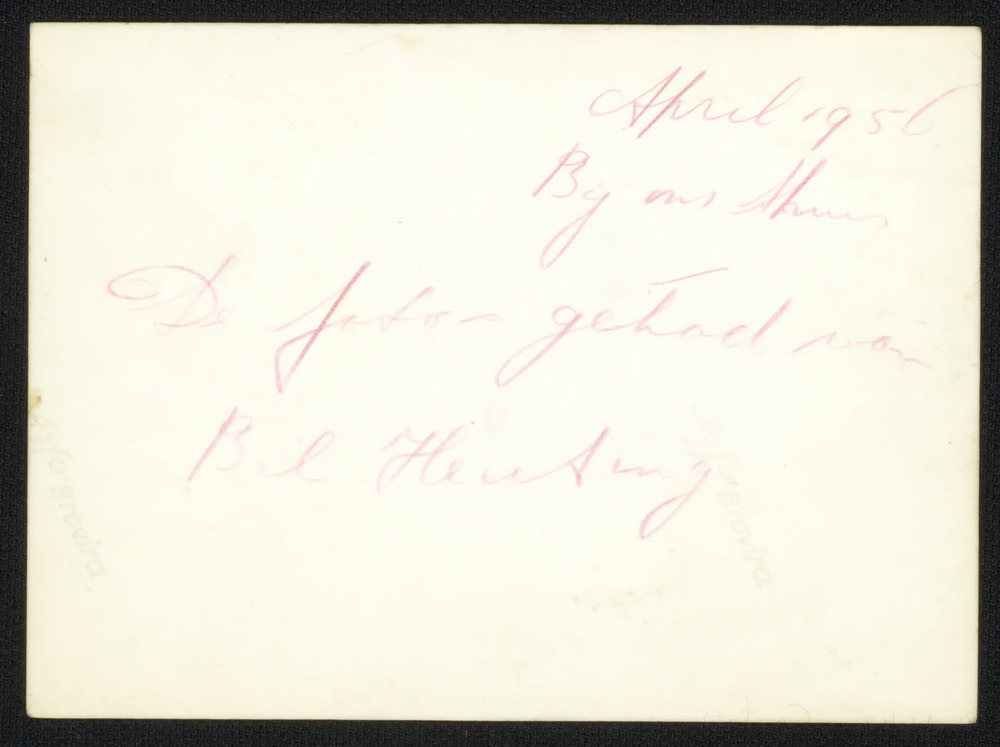 April 1956
Bij ons thuis
De foto-s gehad van
Bil Heuting
Agfa Brovira
Agfa Brovira